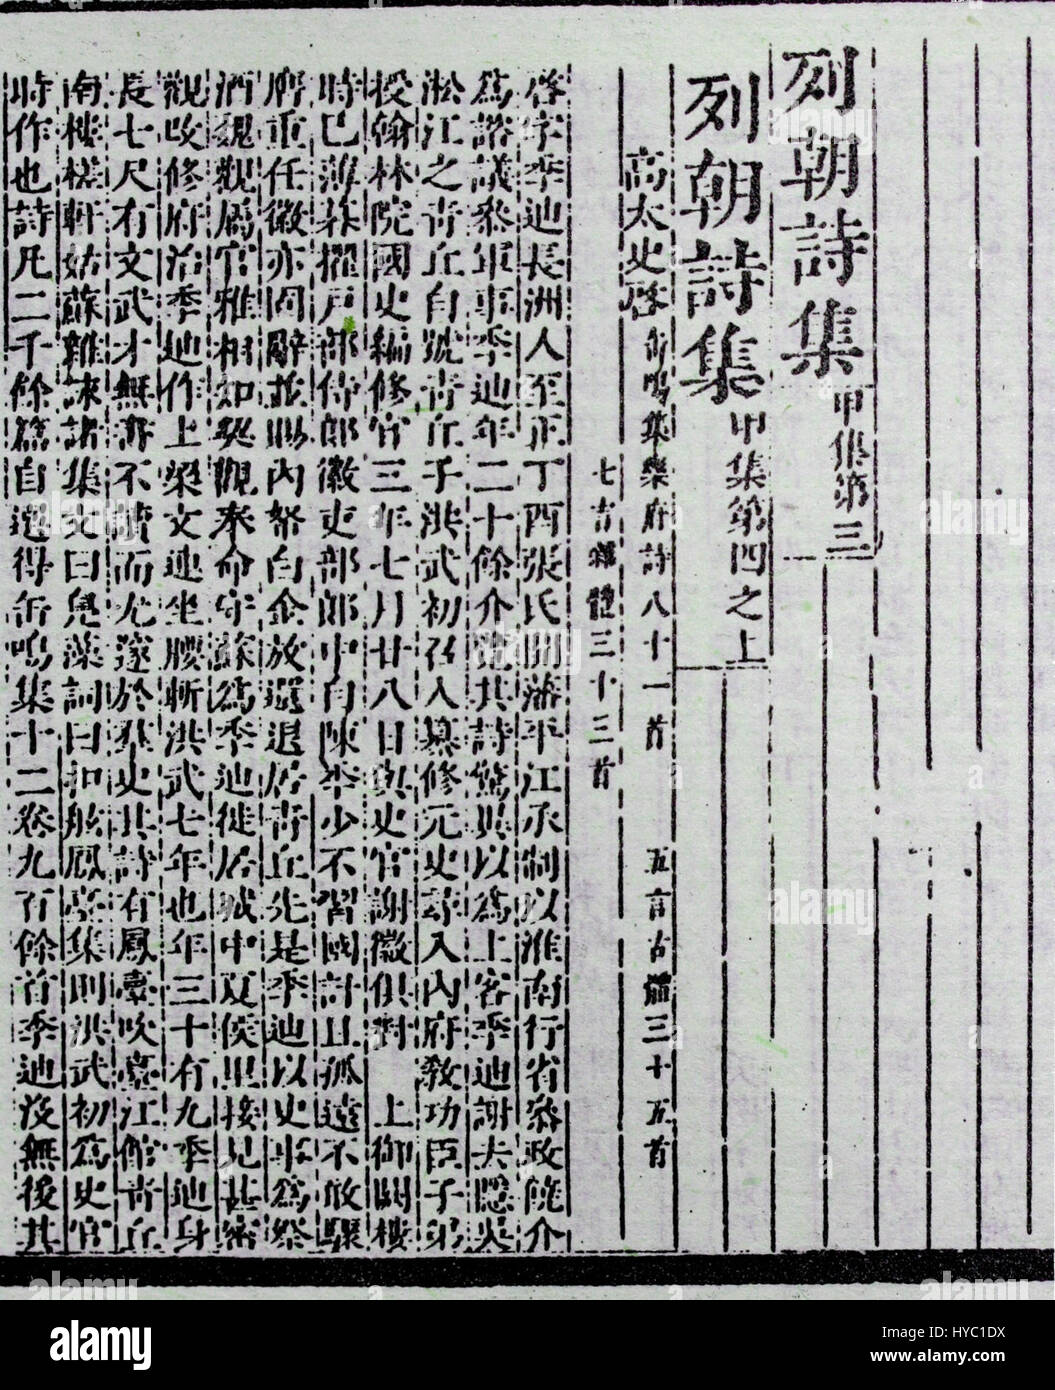 列朝詩集 甲集第三
列朝詩集 甲集第四之上
高太史啓 缶鳴集樂府詩八十一首 五言古體三十五首
七言雜體三十三首
啓字季迪長洲人至正丁酉張氏開藩平江承制以淮南行省叅政饒介
爲諮議叅軍事季迪年二十餘介覽其詩驚異以爲上客季迪謝去隱吳
淞江之青丘自號青丘子洪武初召入纂修元史尋入內府教功臣子弟
授翰林院國史編修官三年七月廿八日與史官謝徽俱對 上御闕樓
時巳薄暮擢戶部侍郎徽吏部郎中自陳年少不習國計且孤遠不敢驟
膺重任徽亦固辭並賜內帑白金放還退居青丘先是季迪以史事爲祭
酒魏觀屬官雅相知契觀奉命守蘇爲季迪徙居城中夏侯里接見甚密
觀改修府治季迪作上梁文連坐腰斬洪武七年也年三十有九季迪身
長七尺有文武才無書不讀而尤邃於羣史其詩有鳳臺吹臺江館青丘
南樓槎軒姑蘇雜詠諸集文曰鳧藻詞曰扣舷鳳臺集則洪武初爲史官
時作也詩凡二千餘篇自選得缶鳴集十二卷九百餘首季迪沒無後其
alamy
alamy
Image ID: HYC1DX
www.alamy.com